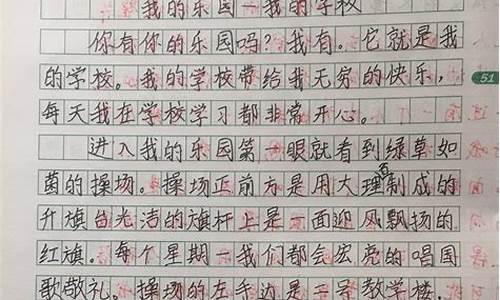 我的乐园—我的学校
你有你的乐园吗?我有。它就是我
的学校。我的学校带给我无穷的快乐,
每天我在学校学习都非常开心。
51
进入我的乐园第一眼就看到绿草如
茵的操场。操场正前方是用大理石制成的
升旗台光洁的旗杆上是一面迎风飘扬的
红旗。每个星期一我们都会宏亮的唱国
歌敬礼。操场的左手边是三号教学楼,